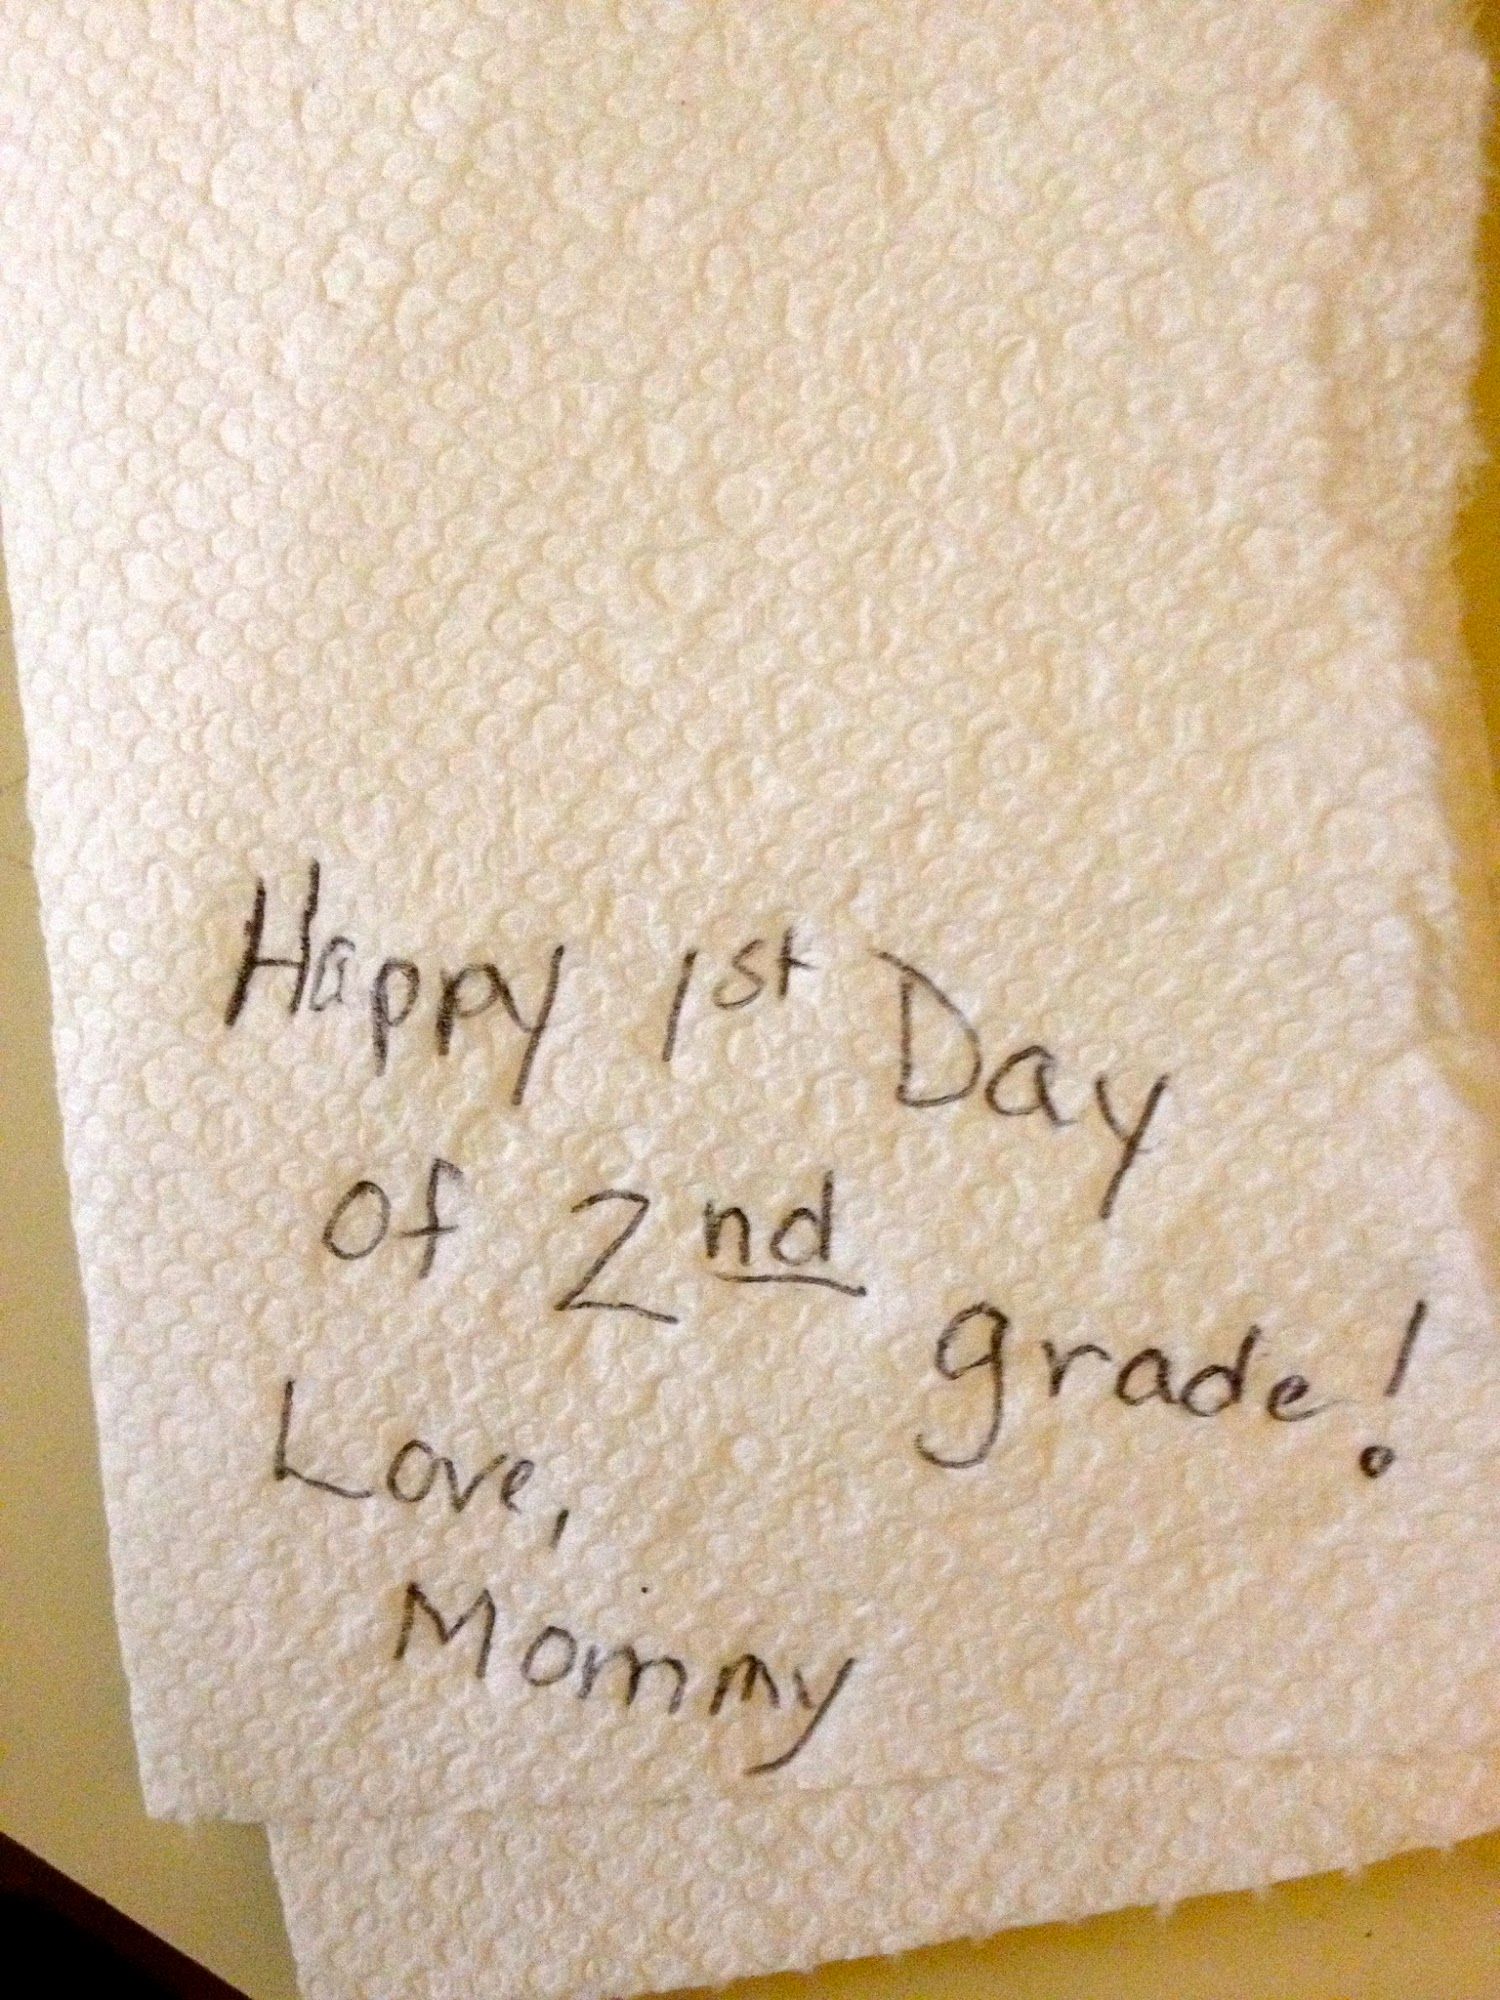 Happy 1st Day
of 2nd grade!
Love,
Mommy